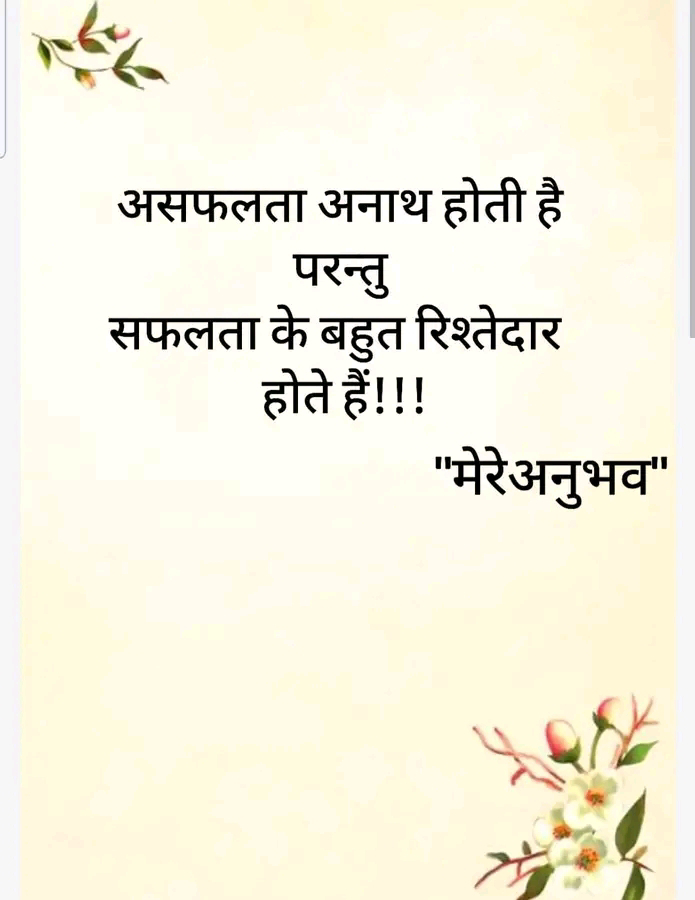 असफलता अनाथ होती है
परन्तु
सफलता के बहुत रिश्तेदार
होते हैं!!!
"मेरेअनुभव"